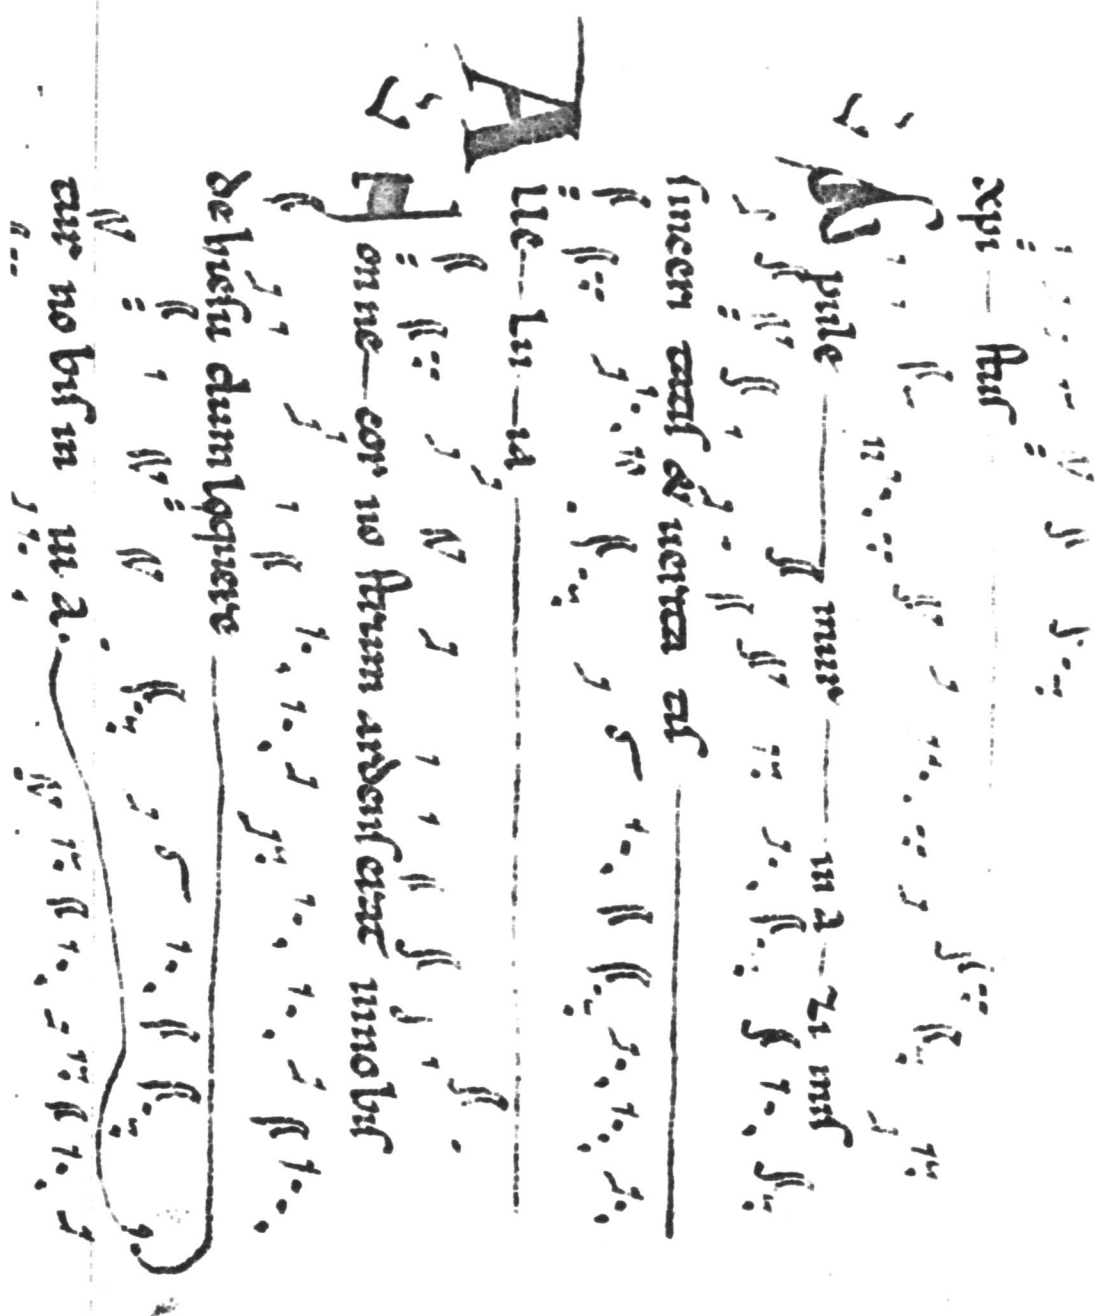 xpi — stus
Epule — mur — in a zi mis
sinceri tatis & uerita tis
Alle — lu — ia
Nonne — cor no strum ardens erat in nobis
de hiesu dum loquere
tur no bis in ui a.